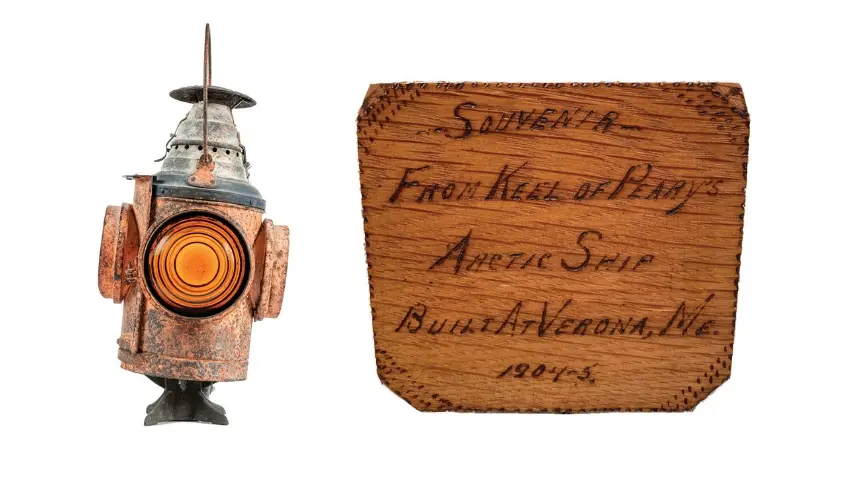 SOUVENIR
FROM KEEL OF PEARY'S
ARCTIC SHIP
BUILT AT VERONA, ME.
1904-5.